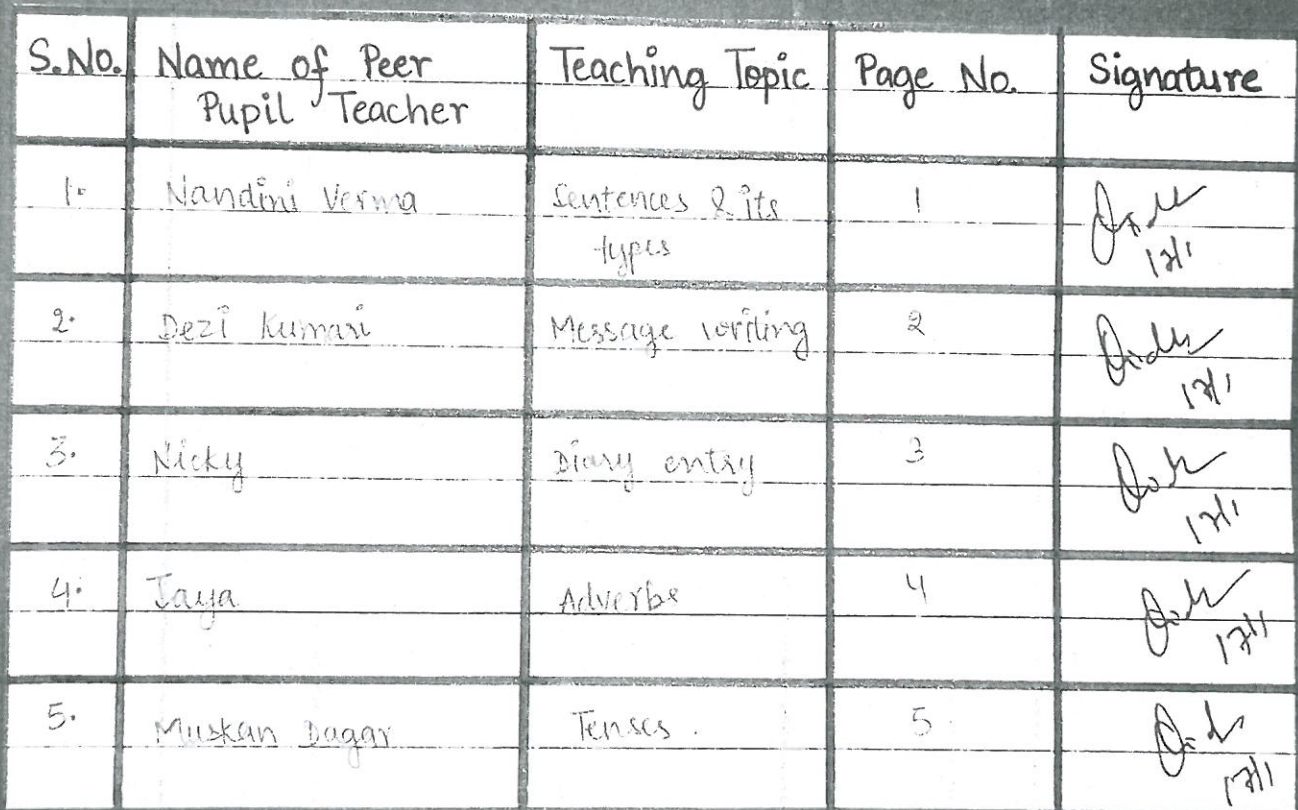 S.No. Name of Peer Pupil Teacher Teaching Topic Page No. Signature
1. Nandini Verma Sentences & its types 1
17/1
2. Dezi Kumari Message writing 2
17/1
3. Nicky Diary entry 3
17/1
4. Jaya Adverbs 4
17/1
5. Muskan Dagar Tenses. 5
17/1